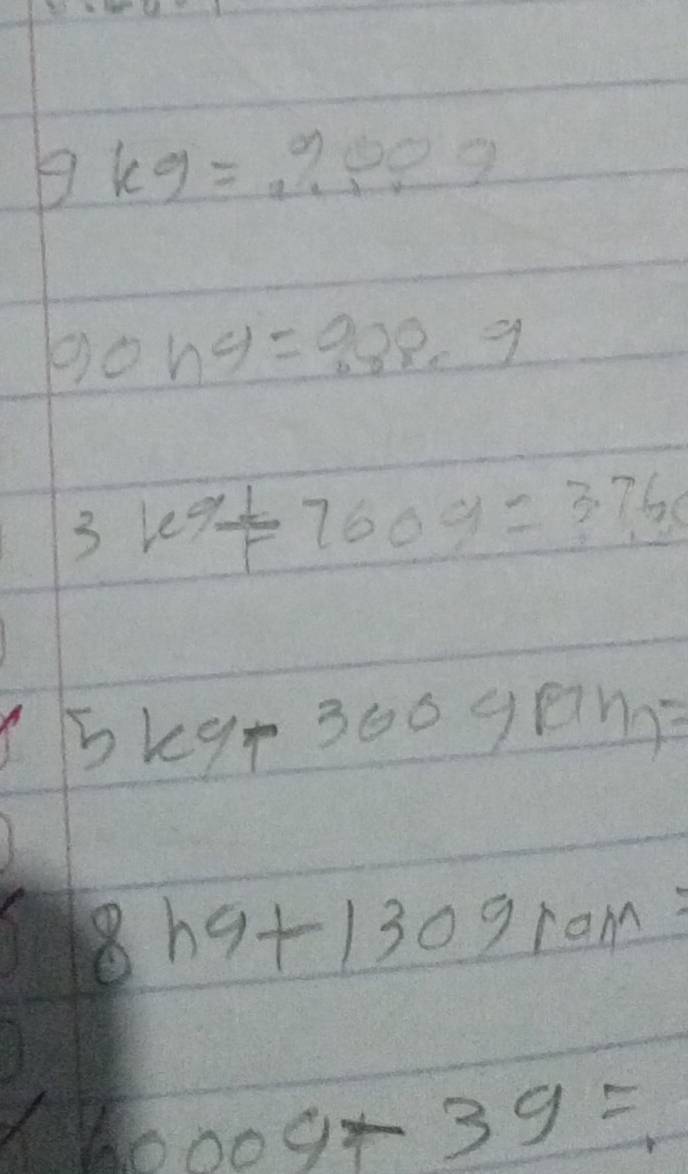 9 kg = 9000 g
90 hg = 900. g
3 kg + 760 g = 376
5 kg + 300 gram =
8 hg + 130 gram =
6000 g + 3 g =